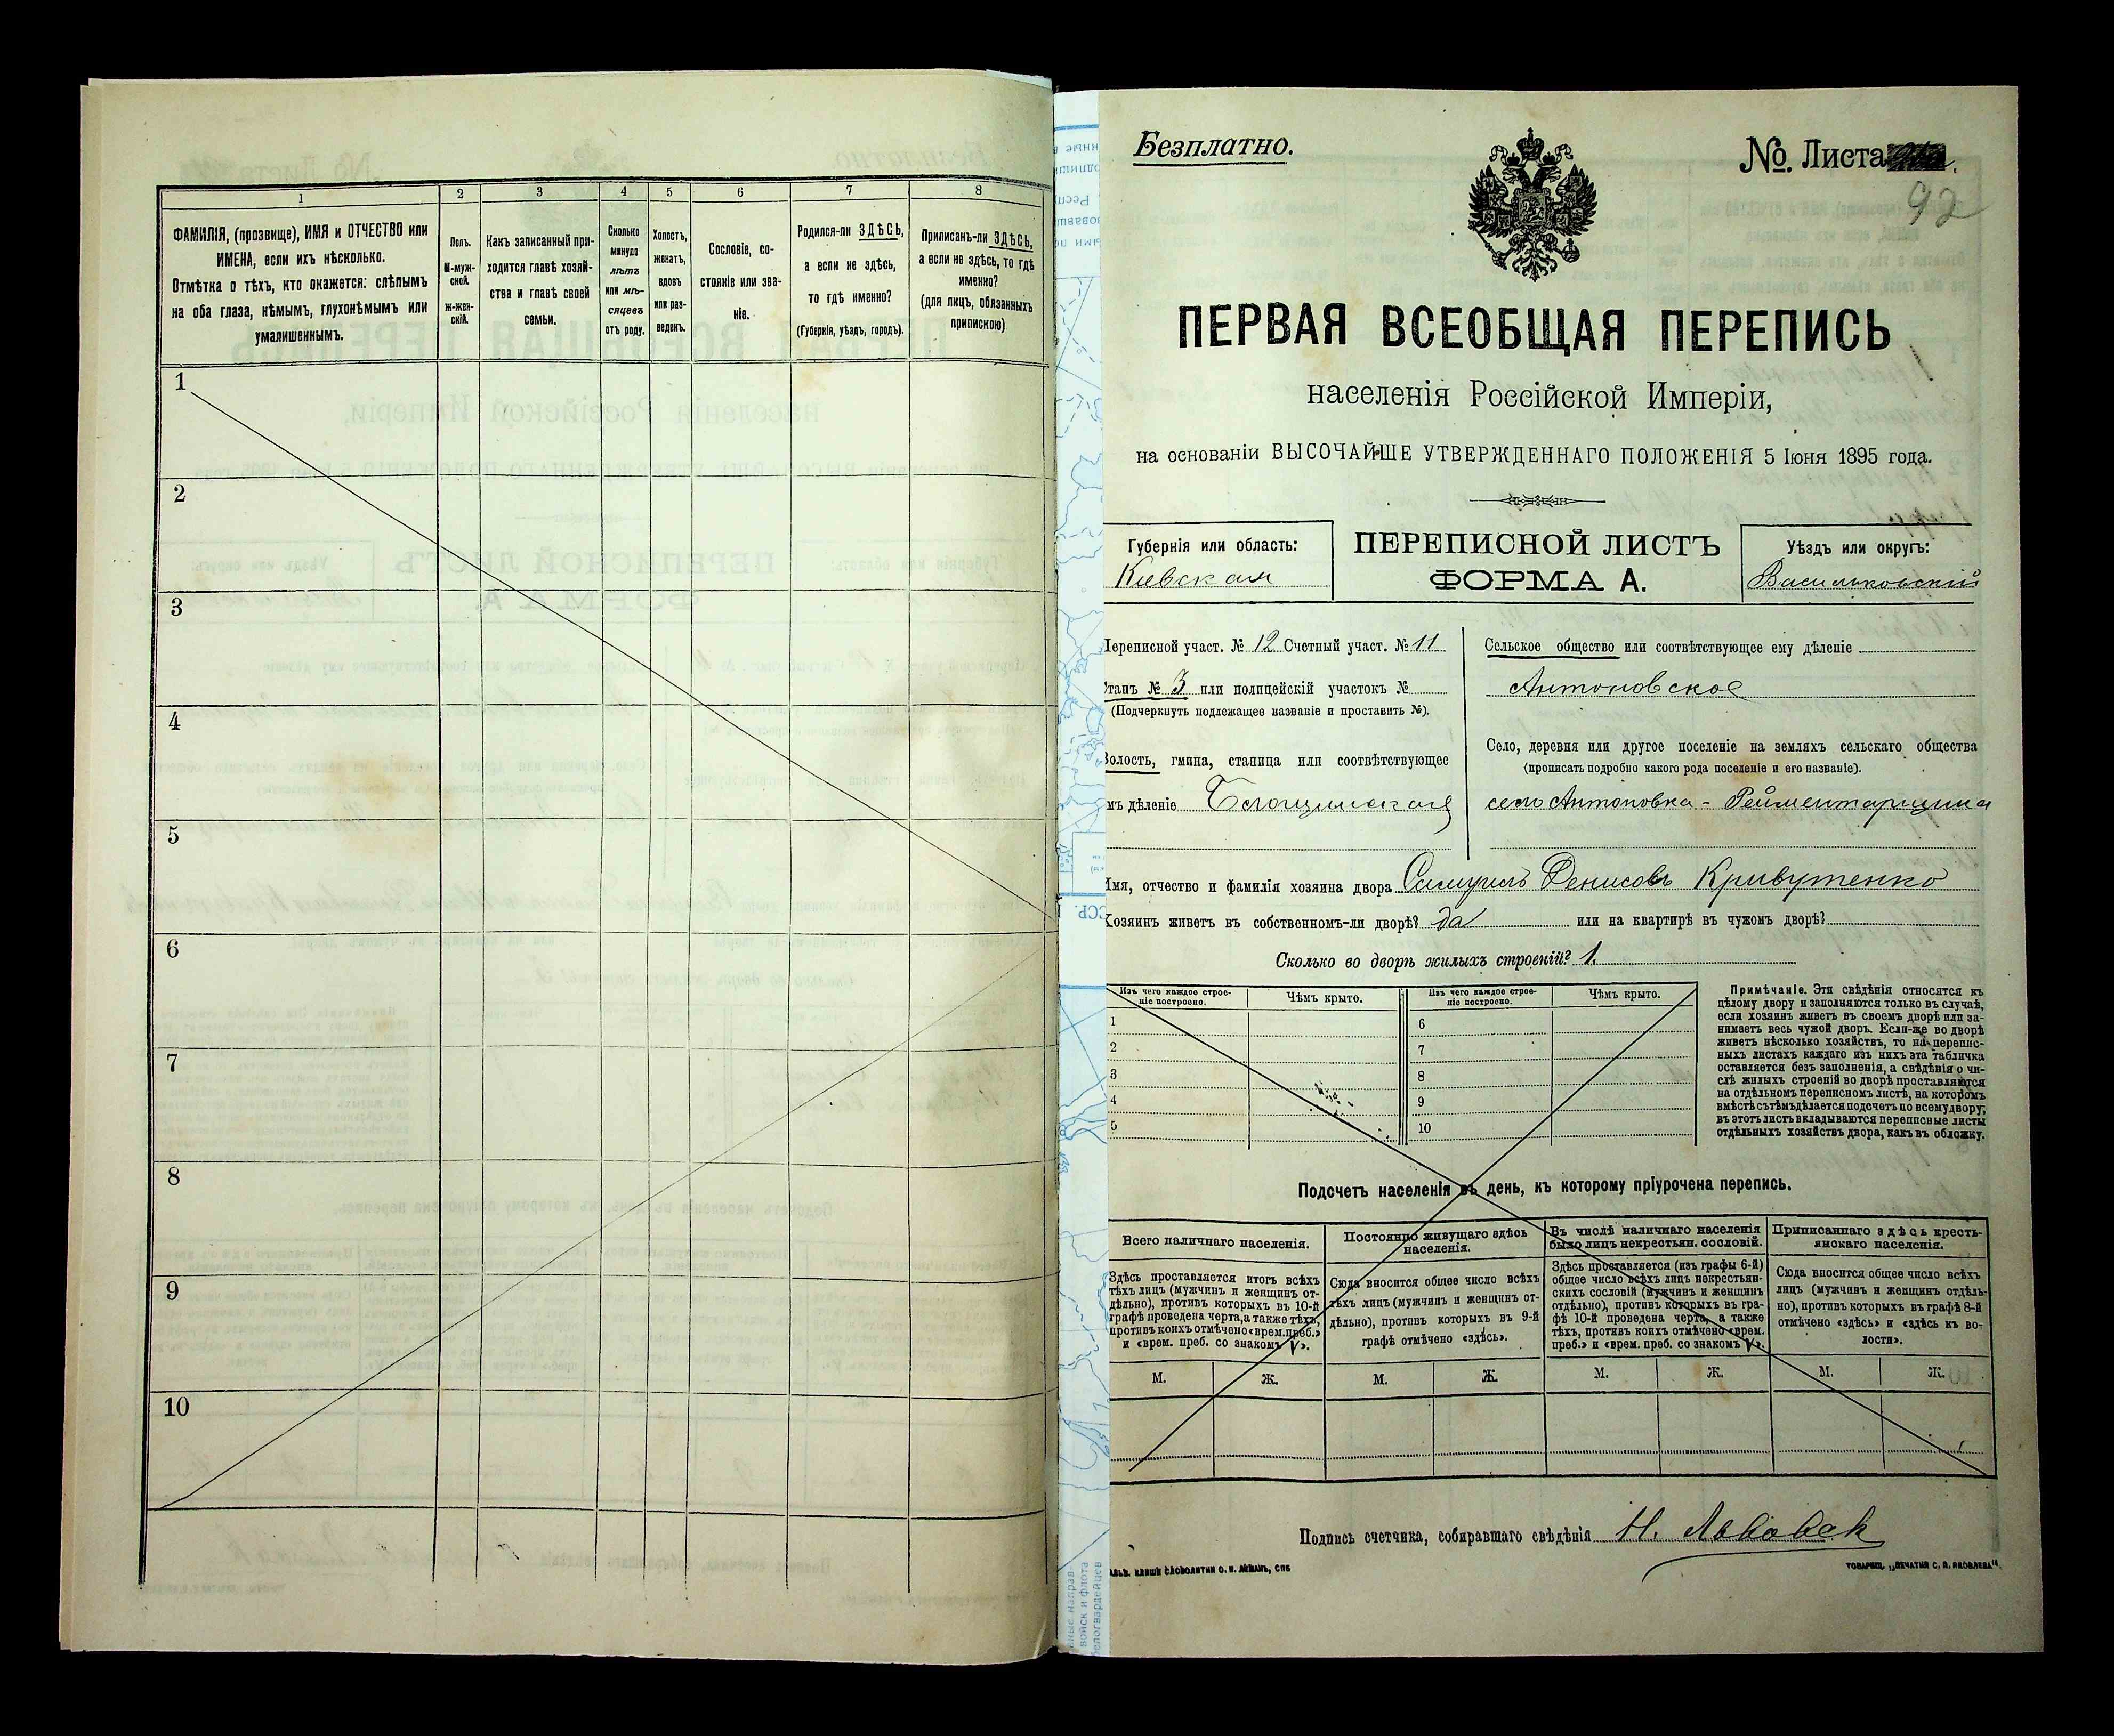 1
2
3
4
5
6
7
8
ФАМИЛІЯ, (прозвище), ИМЯ и ОТЧЕСТВО или
ИМЕНА, если ихъ нѣсколько.
Отмѣтка о тѣхъ, кто окажется: слѣпымъ
на оба глаза, нѣмымъ, глухонѣмымъ или
умалишеннымъ.
Полъ.
М-муж-
ской.
Ж-жен-
скій.
Какъ записанный при-
ходится главѣ хозяй-
ства и главѣ своей
семьи.
Сколько
минуло
лѣтъ
или мѣ-
сяцевъ
отъ роду.
Холостъ,
женатъ,
вдовъ
или раз-
веденъ.
Сословіе, со-
стояніе или зва-
ніе.
Родился-ли ЗДѢСЬ,
а если не здѣсь,
то гдѣ именно?
(Губернія, уѣздъ, городъ).
Приписанъ-ли ЗДѢСЬ,
а если не здѣсь, то гдѣ
именно?
(для лицъ, обязанныхъ
припискою)
1
2
3
4
5
6
7
8
9
10
Безплатно.
№. Листа
92
ПЕРВАЯ ВСЕОБЩАЯ ПЕРЕПИСЬ
населенія Россійской Имперіи,
на основаніи ВЫСОЧАЙШЕ УТВЕРЖДЕННАГО ПОЛОЖЕНІЯ 5 Іюня 1895 года.
Губернія или область:
Кіевская
ПЕРЕПИСНОЙ ЛИСТЪ
ФОРМА А.
Уѣздъ или округъ:
Васильковскій
Переписной участ. № 12 Счетный участ. № 11
Станъ № 3 или полицейскій участокъ №
(Подчеркнуть подлежащее названіе и проставить №).
Волость, гмина, станица или соотвѣтствующее
имъ дѣленіе
Сельское общество или соотвѣтствующее ему дѣленіе
Антоновское
Село, деревня или другое поселеніе на земляхъ сельскаго общества
(прописать подробно какого рода поселеніе и его названіе).
село Антоновка - Рейментарщина
Имя, отчество и фамилія хозяина двора Самуилъ Денисовъ Кривутенко
Хозяинъ живетъ въ собственномъ-ли дворѣ? да или на квартирѣ въ чужомъ дворѣ?
Сколько во дворѣ жилыхъ строеній? 1.
Изъ чего каждое строе-
ніе построено.
Чѣмъ крыто.
Изъ чего каждое строе-
ніе построено.
Чѣмъ крыто.
1
2
3
4
5
6
7
8
9
10
Примѣчаніе. Эти свѣдѣнія относятся къ
цѣлому двору и заполняются только въ случаѣ,
если хозяинъ живетъ въ своемъ дворѣ или за-
нимаетъ весь чужой дворъ. Если-же во дворѣ
живетъ нѣсколько хозяйствъ, то на перепис-
ныхъ листахъ каждаго изъ нихъ эта табличка
оставляется безъ заполненія, а свѣдѣнія о чи-
слѣ жилыхъ строеній во дворѣ проставляются
на отдѣльномъ переписномъ листѣ, на которомъ
вмѣстѣ съ тѣмъ дѣлается подсчетъ по всему двору;
въ этотъ листъ вкладываются переписные листы
отдѣльныхъ хозяйствъ двора, какъ въ обложку.
Подсчетъ населенія въ день, къ которому пріурочена перепись.
Всего наличнаго населенія.
Постоянно живущаго здѣсь
населенія.
Въ числѣ наличнаго населенія
было лицъ некрестьян. сословій.
Приписаннаго здѣсь кресть-
янскаго населенія.
Здѣсь проставляется итогъ всѣхъ
тѣхъ лицъ (мужчинъ и женщинъ от-
дѣльно), противъ которыхъ въ 10-й
графѣ проведена черта, а также тѣхъ,
противъ коихъ отмѣчено «врем. преб.»
и «врем. преб. со знакомъ V».
Сюда вносится общее число всѣхъ
тѣхъ лицъ (мужчинъ и женщинъ от-
дѣльно), противъ которыхъ въ 9-й
графѣ отмѣчено «здѣсь».
Здѣсь проставляется (изъ графы 6-й)
общее число всѣхъ лицъ некрестьян-
скихъ сословій (мужчинъ и женщинъ
отдѣльно), противъ которыхъ въ гра-
фѣ 10-й проведена черта, а также
тѣхъ, противъ коихъ отмѣчено «врем.
преб.» и «врем. преб. со знакомъ V».
Сюда вносится общее число всѣхъ
лицъ (мужчинъ и женщинъ отдѣль-
но), противъ которыхъ въ графѣ 8-й
отмѣчено «здѣсь» и «здѣсь къ во-
лости».
М.
Ж.
М.
Ж.
М.
Ж.
М.
Ж.
Подпись счетчика, собиравшаго свѣдѣнія Н.
СЛОВОЛИТНИ О. И. ЛЕМАНЪ, СПБ
ТОВАРИЩ. „ПЕЧАТНЯ С. П. ЯКОВЛЕВА“.